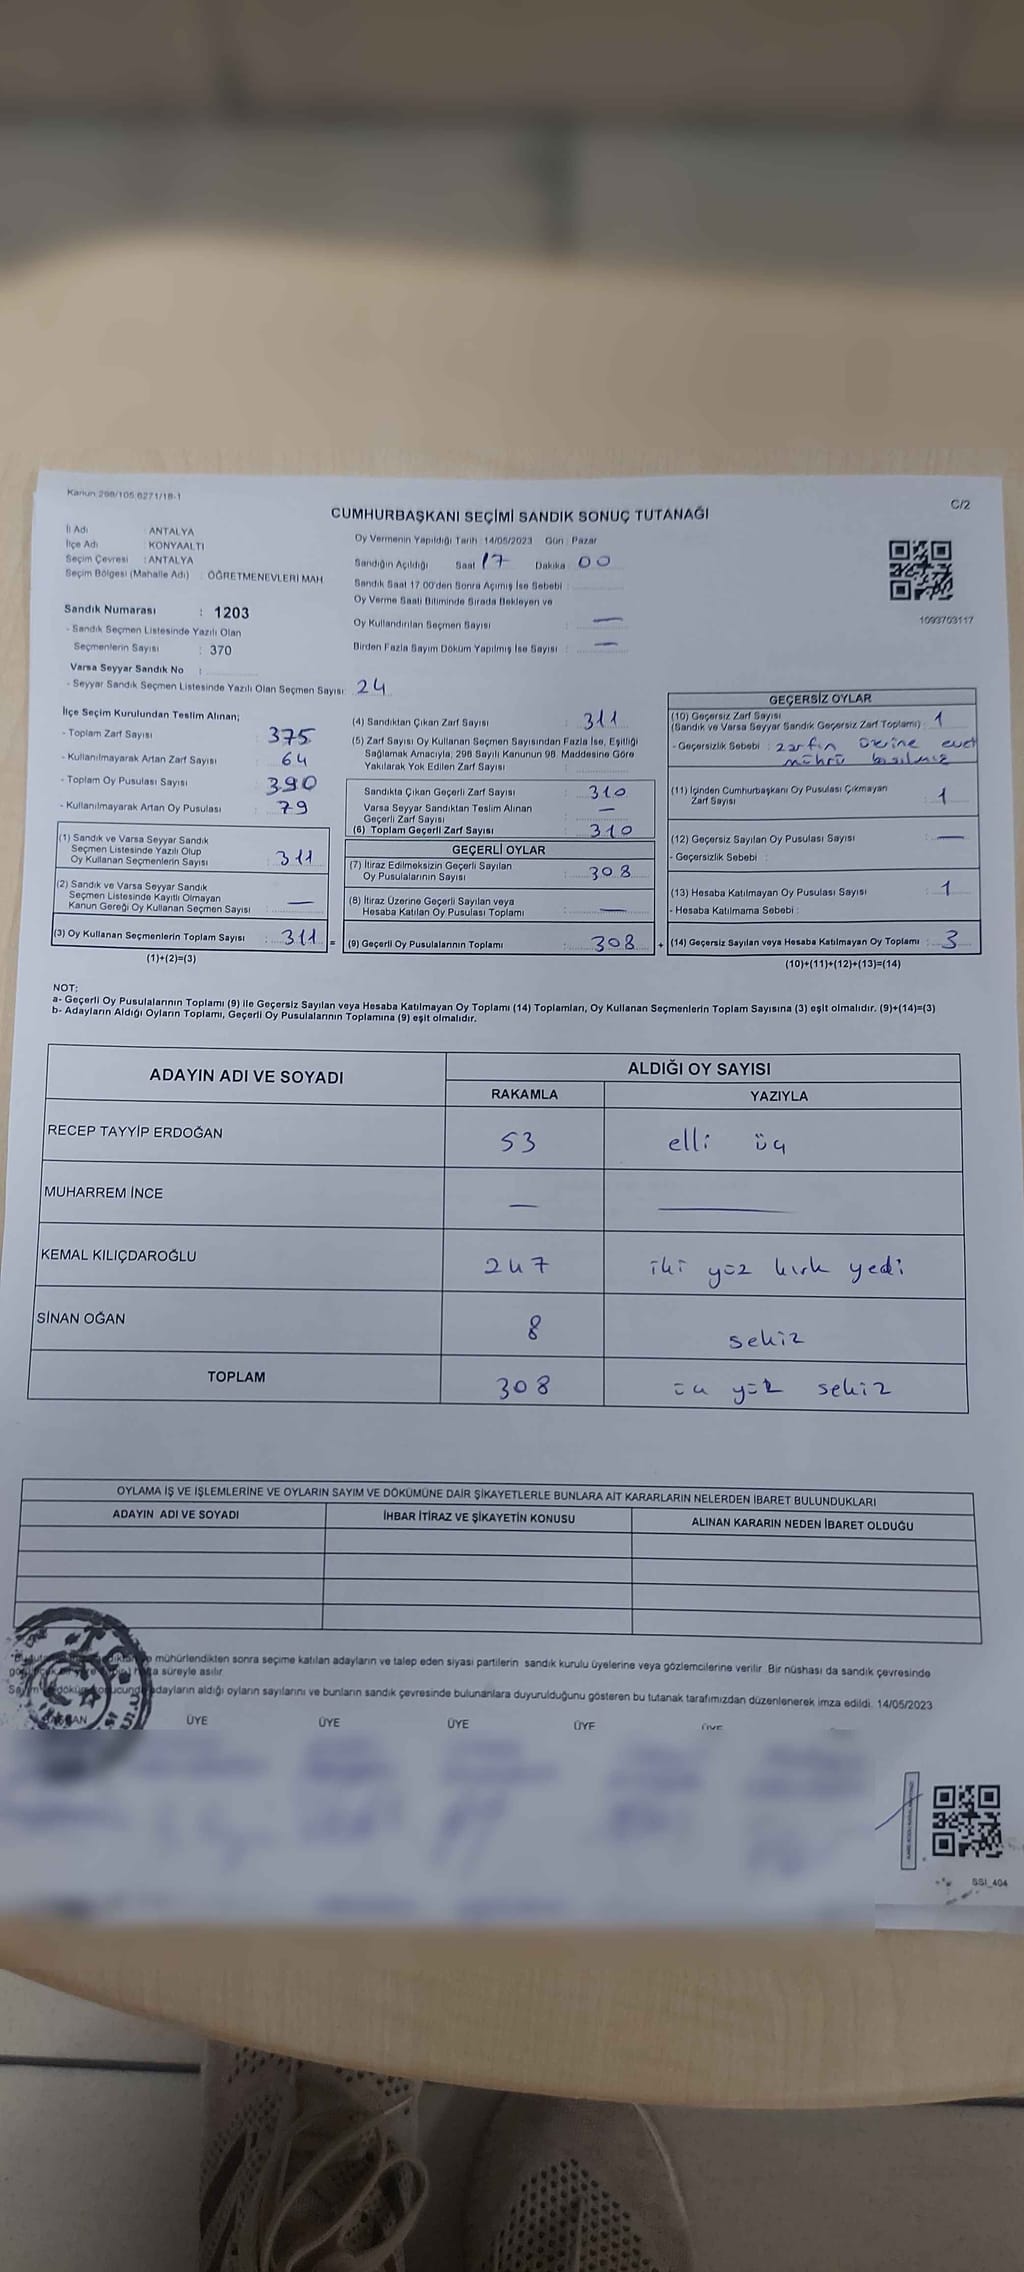 Kanun:298/105,6271/18-1
C/2
CUMHURBAŞKANI SEÇİMİ SANDIK SONUÇ TUTANAĞI
İl Adı : ANTALYA
İlçe Adı : KONYAALTI
Seçim Çevresi : ANTALYA
Seçim Bölgesi (Mahalle Adı) : ÖĞRETMENEVLERİ MAH
Sandık Numarası : 1203
- Sandık Seçmen Listesinde Yazılı Olan
Seçmenlerin Sayısı : 370
Varsa Seyyar Sandık No :
- Seyyar Sandık Seçmen Listesinde Yazılı Olan Seçmen Sayısı: 24
Oy Vermenin Yapıldığı Tarih : 14/05/2023 Gün : Pazar
Sandığın Açıldığı Saat 17 Dakika 00
Sandık Saat 17.00'den Sonra Açımış İse Sebebi :
Oy Verme Saati Bitiminde Sırada Bekleyen ve
Oy Kullandırılan Seçmen Sayısı : —
Birden Fazla Sayım Döküm Yapılmış İse Sayısı : —
1093703117
İlçe Seçim Kurulundan Teslim Alınan;
- Toplam Zarf Sayısı : 375
- Kullanılmayarak Artan Zarf Sayısı : 64
- Toplam Oy Pusulası Sayısı : 390
- Kullanılmayarak Artan Oy Pusulası : 79
(1) Sandık ve Varsa Seyyar Sandık
Seçmen Listesinde Yazılı Olup
Oy Kullanan Seçmenlerin Sayısı : 311
(2) Sandık ve Varsa Seyyar Sandık
Seçmen Listesinde Kayıtlı Olmayan
Kanun Gereği Oy Kullanan Seçmen Sayısı : —
(3) Oy Kullanan Seçmenlerin Toplam Sayısı : 311 =
(1)+(2)=(3)
(4) Sandıktan Çıkan Zarf Sayısı : 311
(5) Zarf Sayısı Oy Kullanan Seçmen Sayısından Fazla İse, Eşitliği
Sağlamak Amacıyla, 298 Sayılı Kanunun 98. Maddesine Göre
Yakılarak Yok Edilen Zarf Sayısı :
Sandıkta Çıkan Geçerli Zarf Sayısı : 310
Varsa Seyyar Sandıktan Teslim Alınan
Geçerli Zarf Sayısı : —
(6) Toplam Geçerli Zarf Sayısı : 310
GEÇERLİ OYLAR
(7) İtiraz Edilmeksizin Geçerli Sayılan
Oy Pusulalarının Sayısı : 308
(8) İtiraz Üzerine Geçerli Sayılan veya
Hesaba Katılan Oy Pusulası Toplamı : —
(9) Geçerli Oy Pusulalarının Toplamı : 308 +
GEÇERSİZ OYLAR
(10) Geçersiz Zarf Sayısı
(Sandık ve Varsa Seyyar Sandık Geçersiz Zarf Toplamı) : 1
- Geçersizlik Sebebi : zarfın üzerine evet
mührü basılmış
(11) İçinden Cumhurbaşkanı Oy Pusulası Çıkmayan
Zarf Sayısı : 1
(12) Geçersiz Sayılan Oy Pusulası Sayısı : —
- Geçersizlik Sebebi :
(13) Hesaba Katılmayan Oy Pusulası Sayısı : 1
- Hesaba Katılmama Sebebi :
(14) Geçersiz Sayılan veya Hesaba Katılmayan Oy Toplamı : 3
(10)+(11)+(12)+(13)=(14)
NOT:
a- Geçerli Oy Pusulalarının Toplamı (9) ile Geçersiz Sayılan veya Hesaba Katılmayan Oy Toplamı (14) Toplamları, Oy Kullanan Seçmenlerin Toplam Sayısına (3) eşit olmalıdır. (9)+(14)=(3)
b- Adayların Aldığı Oyların Toplamı, Geçerli Oy Pusulalarının Toplamına (9) eşit olmalıdır.
ADAYIN ADI VE SOYADI ALDIĞI OY SAYISI
RAKAMLA YAZIYLA
RECEP TAYYİP ERDOĞAN 53 elli üç
MUHARREM İNCE — —
KEMAL KILIÇDAROĞLU 247 iki yüz kırk yedi
SİNAN OĞAN 8 sekiz
TOPLAM 308 üç yüz sekiz
OYLAMA İŞ VE İŞLEMLERİNE VE OYLARIN SAYIM VE DÖKÜMÜNE DAİR ŞİKAYETLERLE BUNLARA AİT KARARLARIN NELERDEN İBARET BULUNDUKLARI
ADAYIN ADI VE SOYADI İHBAR İTİRAZ VE ŞİKAYETİN KONUSU ALINAN KARARIN NEDEN İBARET OLDUĞU
mühürlendikten sonra seçime katılan adayların ve talep eden siyasi partilerin sandık kurulu üyelerine veya gözlemcilerine verilir. Bir nüshası da sandık çevresinde
süreyle asılır.
adayların aldığı oyların sayılarını ve bunların sandık çevresinde bulunanlara duyurulduğunu gösteren bu tutanak tarafımızdan düzenlenerek imza edildi. 14/05/2023
ÜYE ÜYE ÜYE ÜYE ÜYE
SSI_404